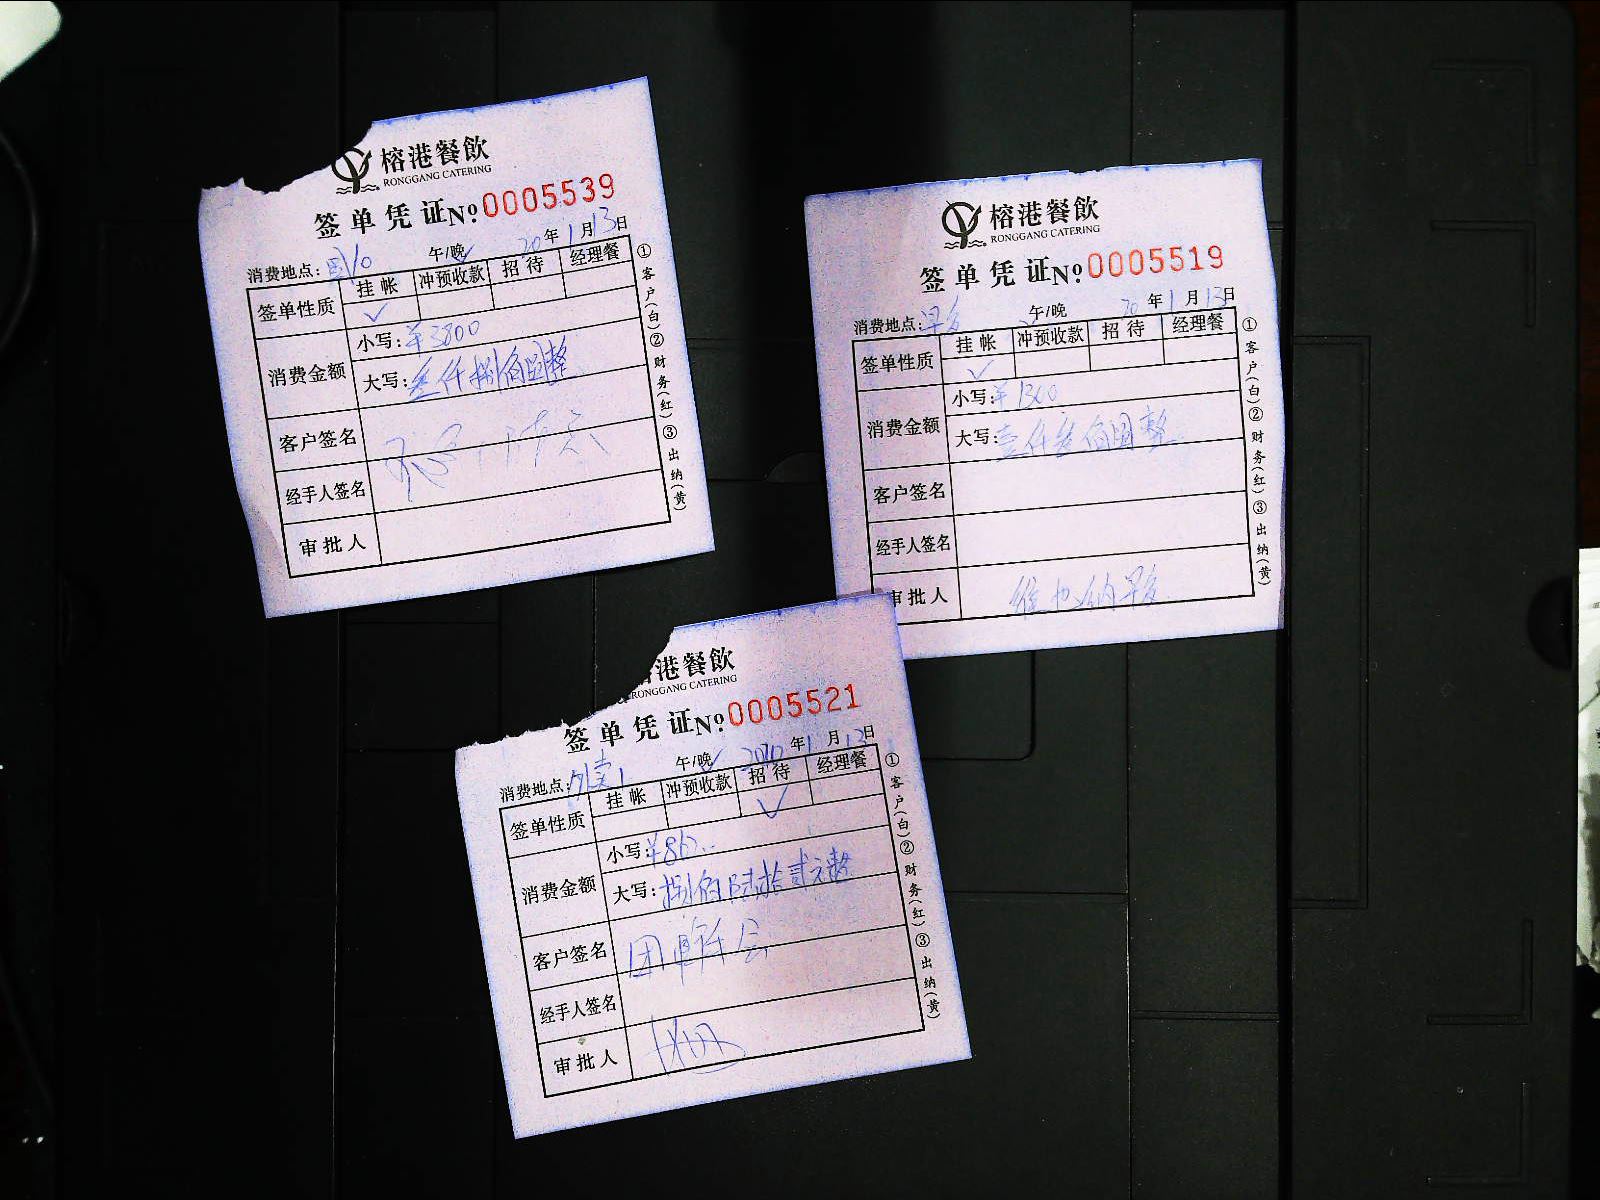 榕港餐飲
RONGGANG CATERING
签单凭证№0005539
午/晚 20年1月13日
消费地点:
签单性质 挂帐 冲预收款 招待 经理餐
✓
消费金额 小写:¥3800
大写:叁仟捌佰圆整
客户签名
经手人签名
审批人
①客户(白)②财务(红)③出纳(黄)
榕港餐飲
RONGGANG CATERING
签单凭证№0005519
午/晚 20年1月13日
消费地点:早餐
签单性质 挂帐 冲预收款 招待 经理餐
✓
消费金额 小写:¥1300
大写:壹仟叁佰圆整
客户签名
经手人签名
审批人 维也纳早餐
①客户(白)②财务(红)③出纳(黄)
港餐飲
RONGGANG CATERING
签单凭证№0005521
午/晚 2020年1月13日
消费地点:外卖1
签单性质 挂帐 冲预收款 招待 经理餐
✓
消费金额 小写:¥862
大写:捌佰陆拾贰元整
客户签名 团年会
经手人签名
审批人
①客户(白)②财务(红)③出纳(黄)